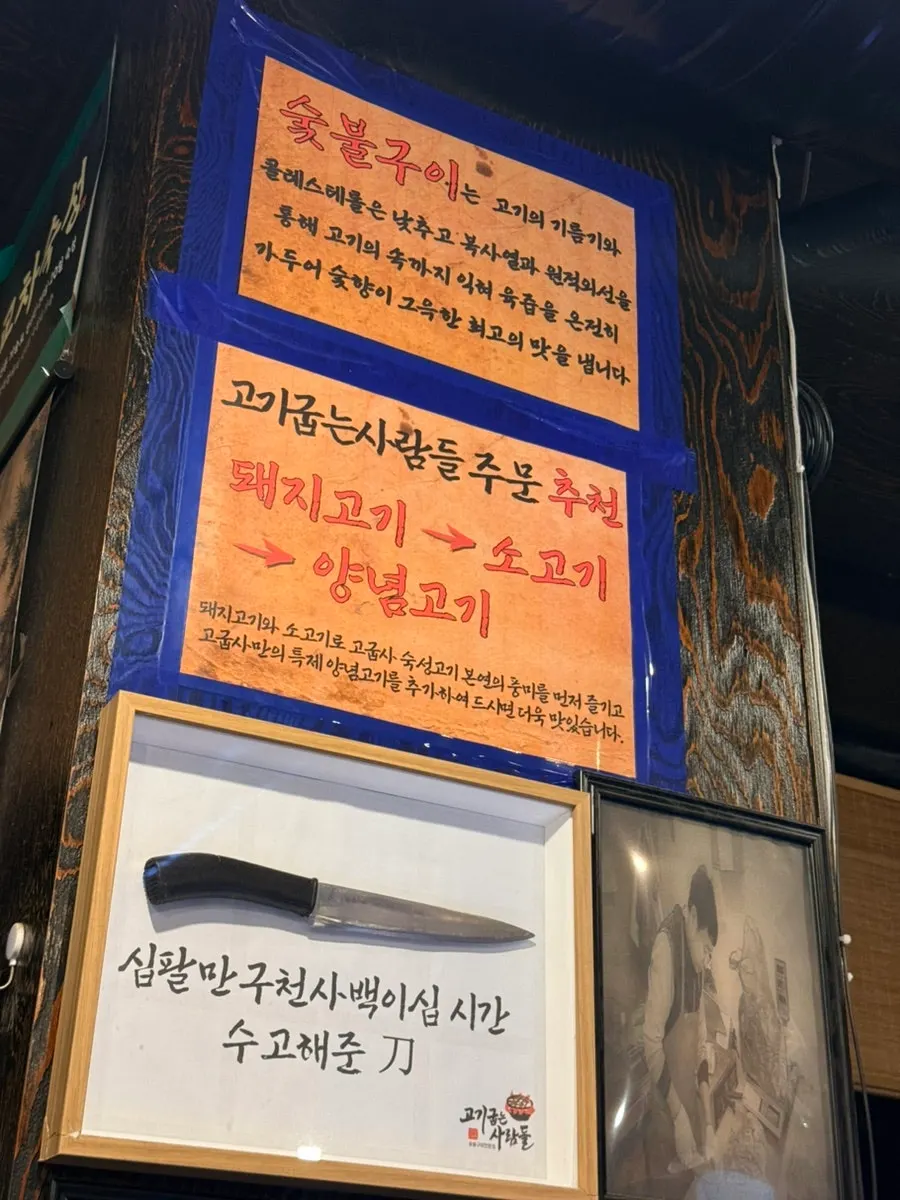 숯불구이는 고기의 기름기와
콜레스테롤은 낮추고 복사열과 원적외선을
통해 고기의 속까지 익혀 육즙을 온전히
가두어 숯향이 그윽한 최고의 맛을 냅니다
고기굽는사람들 주문 추천
돼지고기 → 소고기
→ 양념고기
돼지고기와 소고기로 고굽사 숙성고기 본연의 풍미를 먼저 즐기고
고굽사만의 특제 양념고기를 추가하여 드시면 더욱 맛있습니다.
십팔만 구천사백이십 시간
수고해준 刀
고기굽는
사람들